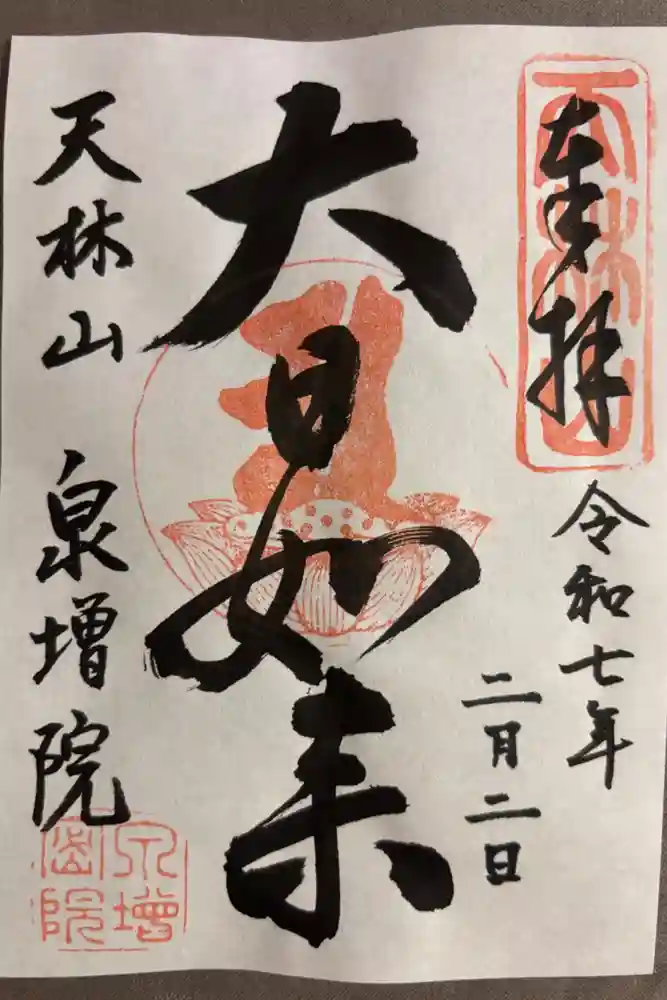 奉拝
天林山
令和七年
二月二日
大日如来
天林山 泉増院
泉増
密院